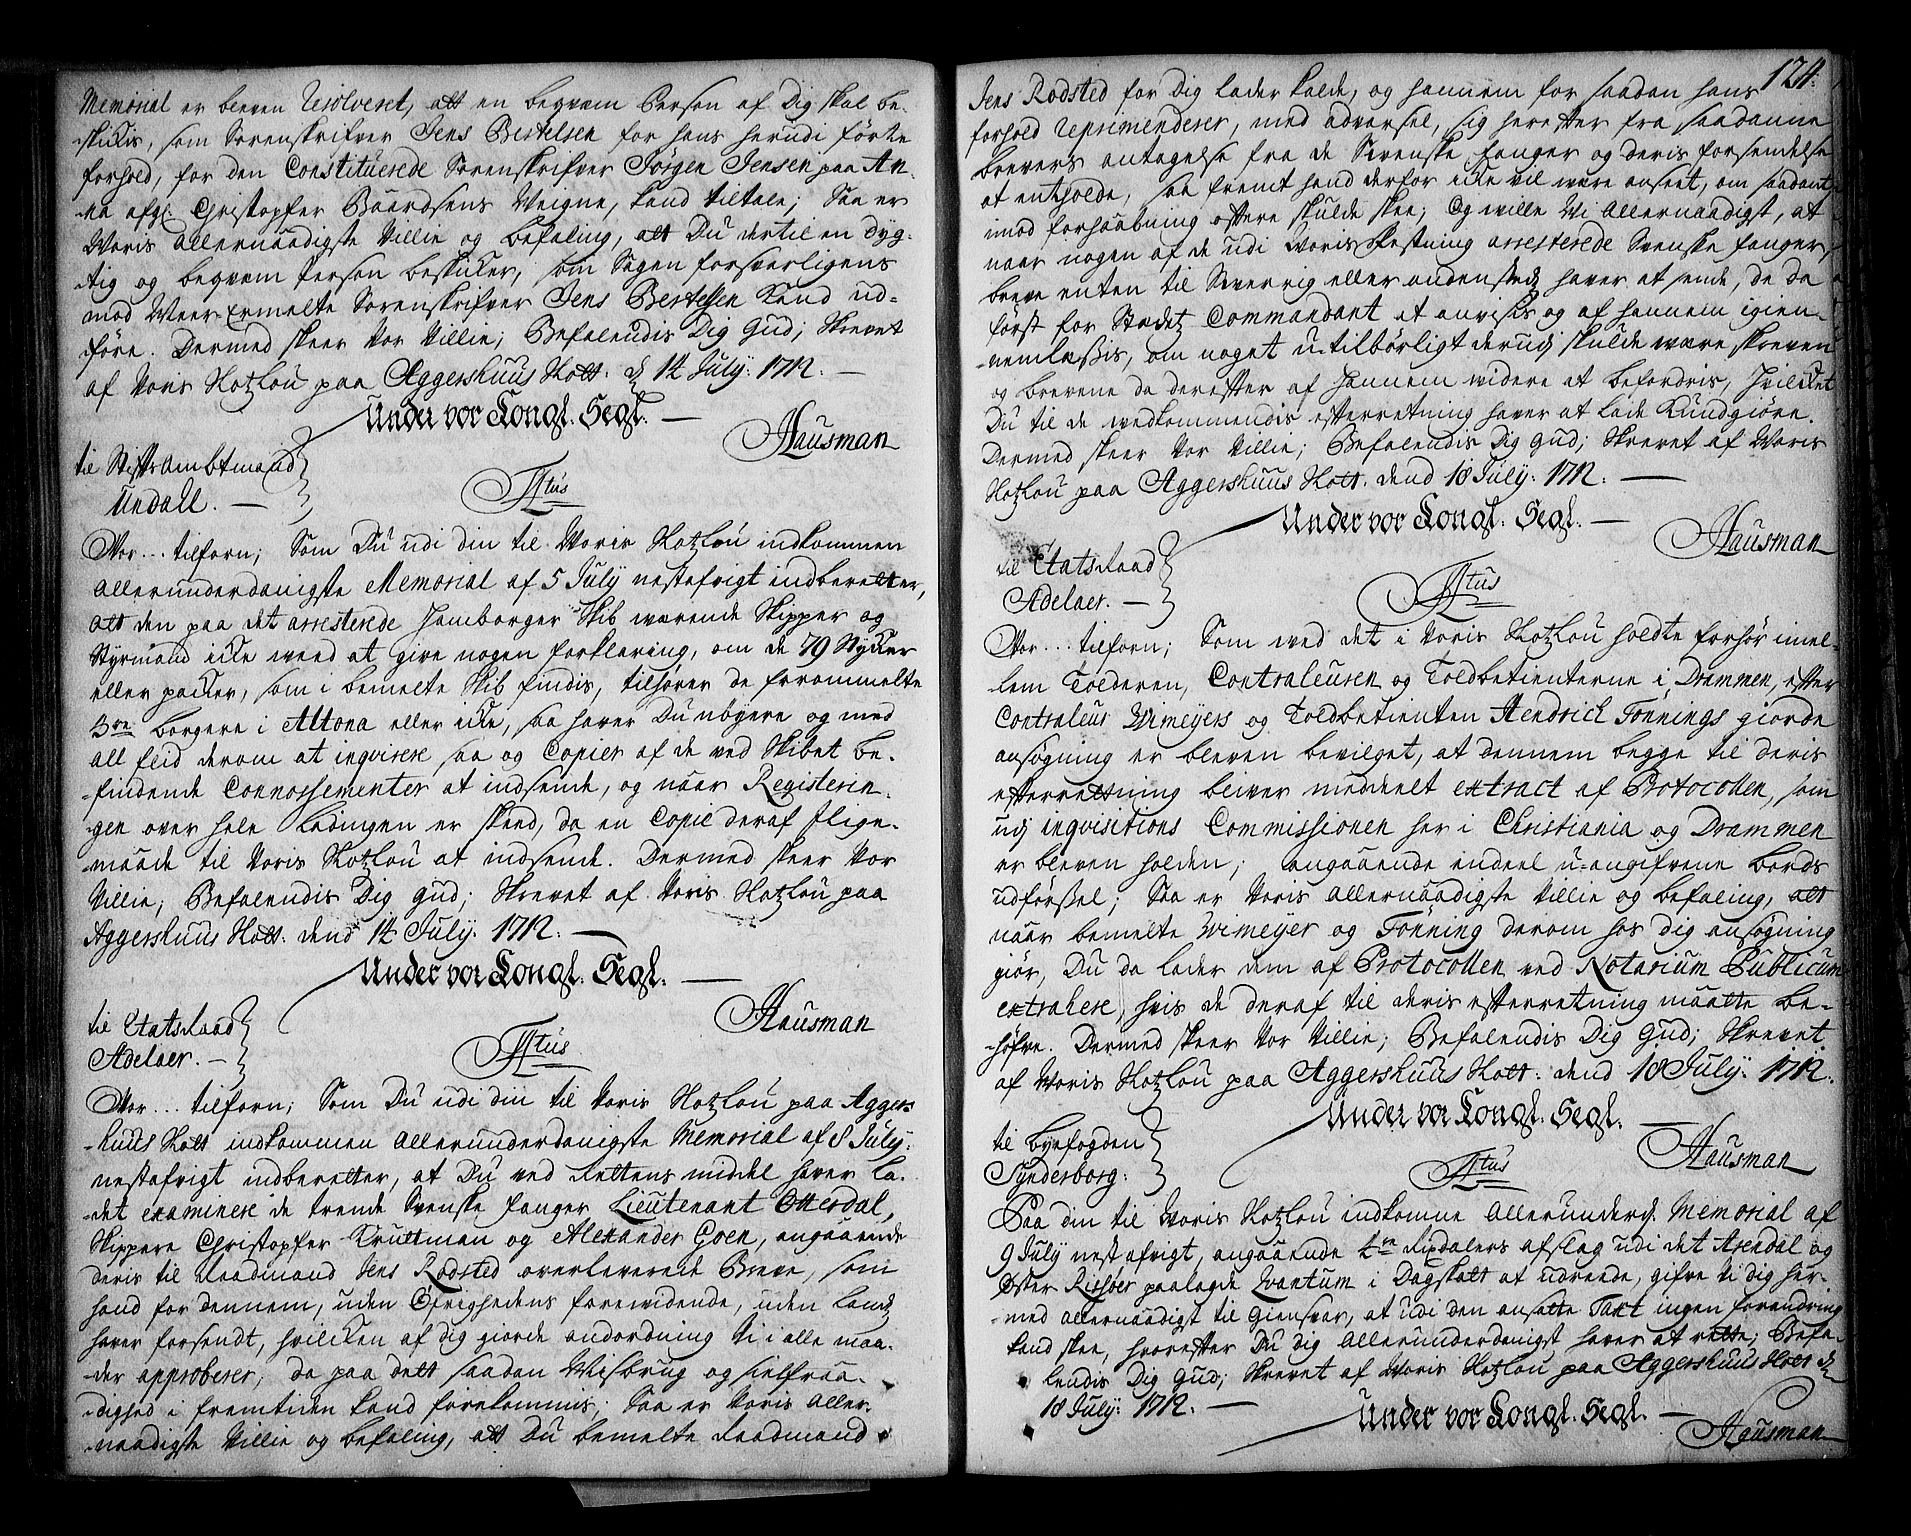 Memorial er bleven Resolveret, att en beqvem Person af Dig skal be-
skikkis, som Sorenskrifver Jens Bertelsen for hans herudi førte
forhold, for den Constituerede Sorenskrifver Jørgen Jensen paa An-
na afg: Christopfer Baardsens Veigne, kand tiltale; Saa er
Woris allernaadigste Villie og befaling, att Du dertil en dyg-
tig og beqvem Person beskikker, som Sagen forsvarligens
mod Weer Ermelte Sorenskrifver Jens Bertelsen kand ud-
føre. Dermed skeer Vor Villie; Befalendis Dig Gud; Skrevet
af Voris Slotzlou paa Aggershuus Slott. d 14 July: 1712. —
Under vor Kongl. Segl. —
Hausman
til Stiftsambtmand
Undall. —
Attus
Vor... tilforn; Som Du udi din til Woris Slotzlou indkommen
allerunderdanigste Memorial af 5 July nestafvigt indberetter,
att den paa det arresterede Hamborger Skib værende Skipper og
Styrmand icke weed at give nogen forklaring, om de 79 Stycker
eller packer, som i bemelte Skib findis, tilhører de forommelte
3re borgere i Altona eller icke, saa haver Du nøyere og med
all flid derom at inqvirere saa og Copier af de ved Skibet be-
findende Connossementer at indsende, og naar Registerin-
gen over hele Ladingen er skeed, da en Copie deraf i lige-
maade til Voris Slotzlou at indsende. Dermed skeer Vor
Villie; Befalendis Dig Gud; Skrevet af Voris Slotzlou paa
Aggershuus Slott. dend 14 July: 1712. —
Under vor Kongl. Segl. —
Hausman
til Etats Raad
Adelaer. —
Attus
Vor... tilforn; Som Du udi din til Voris Slotzlou paa Agger-
huus Slott indkommen allerunderdanigste Memorial af 8 July:
nestafvigt indberetter, at Du ved Rettens middel haver la-
det examinere de trende Svenske fanger Lieutenant Otterdal,
Skippere Christopfer Kruttman og Alexander Goen, angaaende
deris til Raadmand Jens Rodsted overleverede Breve, som
hand for dennem, uden Øfrighedens forewidende, uden Landz
haver forsendt, hvilcken af dig giorde andordning Vi i alle maa-
der approberer, da paa dett saadan Misbrug og sielfraa-
dighed i fremtiden kand forekommis; Saa er Voris aller-
naadigste Villie og befaling, att Du bemelte Raadmand
124.
Jens Rodsted for dig lader kalde, og hannem for saadan hans
forhold Reprimenderer, med advarsel, sig herefter fra saadanne
brevers antagelse fra de Svenske fanger og deris forsendelse
at entholde, saa fremt hand derfor icke vil være anseet, om saadant
imod forhaabning oftere skulde skee; Og wille Vi allernaadigst, at
naar nogen af de udi Voris Festning arresterede Svenske fanger,
breve enten til Sverrig eller andenstedz haver at sende, de da
først for Stedetz Commandant at anvisis og af hannem igien-
nemlæssis, om noget utilbørligt derudj skulde være skreven
og brevene da derefter af hannem widere at befordris, hvilcket
Du til de wedkommendis efterretning haver at lade kundgiøre.
Dermed skeer Vor Villie; Befalendis Dig Gud; Skrevet af Woris
Slotzlou paa Aggershuus Slott. dend 18 July: 1712. —
Under vor Kongl. Segl. —
Hausman
til Etats Raad
Adelaer. —
Attus
Vor... tilforn; Som ved det i Voris Slotzlou holdte forhør imel-
lem Tolderen, Contraleuren og Toldbetienterne i Drammen, efter
Contraleur Wimeyers og Toldbetienten Hendrick Tønnings giorde
ansøgning er bleven bevilget, at dennem begge til deris
efterretning bliver meddeelt extract af Protocollen, som
udj inqvisitions Commissionen her i Christiania og Drammen
er bleven holden; angaaende indeel u-angifvene bords
udførssel; Saa er Voris allernaadigste Villie og befaling, att
naar bemelte Wimeyer og Tønning derom hos dig ansøgning
giør, Du da lader dem af Protocollen ved Notarium Publicum
extrahere, hvis de deraf til deris efterretning maatte be-
høfve. Dermed skeer Vor Villie; Befalendis Dig Gud; Skrevet
af Woris Slotzlou paa Aggershuus Slott. dend 18 July: 1712.
Under vor Kongl. Segl. —
Hausman
til byefogden
Synderborg:
Attus
Paa din til Woris Slotzlou indkomne Allerunderd. Memorial af
9 July nestafvigt, angaaende Rixdalers afslag udi det Arendal og
Øster Riisøer paalagde Qvantum i Dagskatt at udreede, gifve Vi dig her-
med allernaadigst til Giensvar, at udi den ansatte Taxt ingen forandring
kand skee, hvorefter Du dig allerunderdanigst haver at rette; Befa-
lendis Dig Gud; Skrevet af Woris Slotzlou paa Aggershuus Slott d
18 July: 1712. —
Under vor Kongl. Segl. —
Hausman